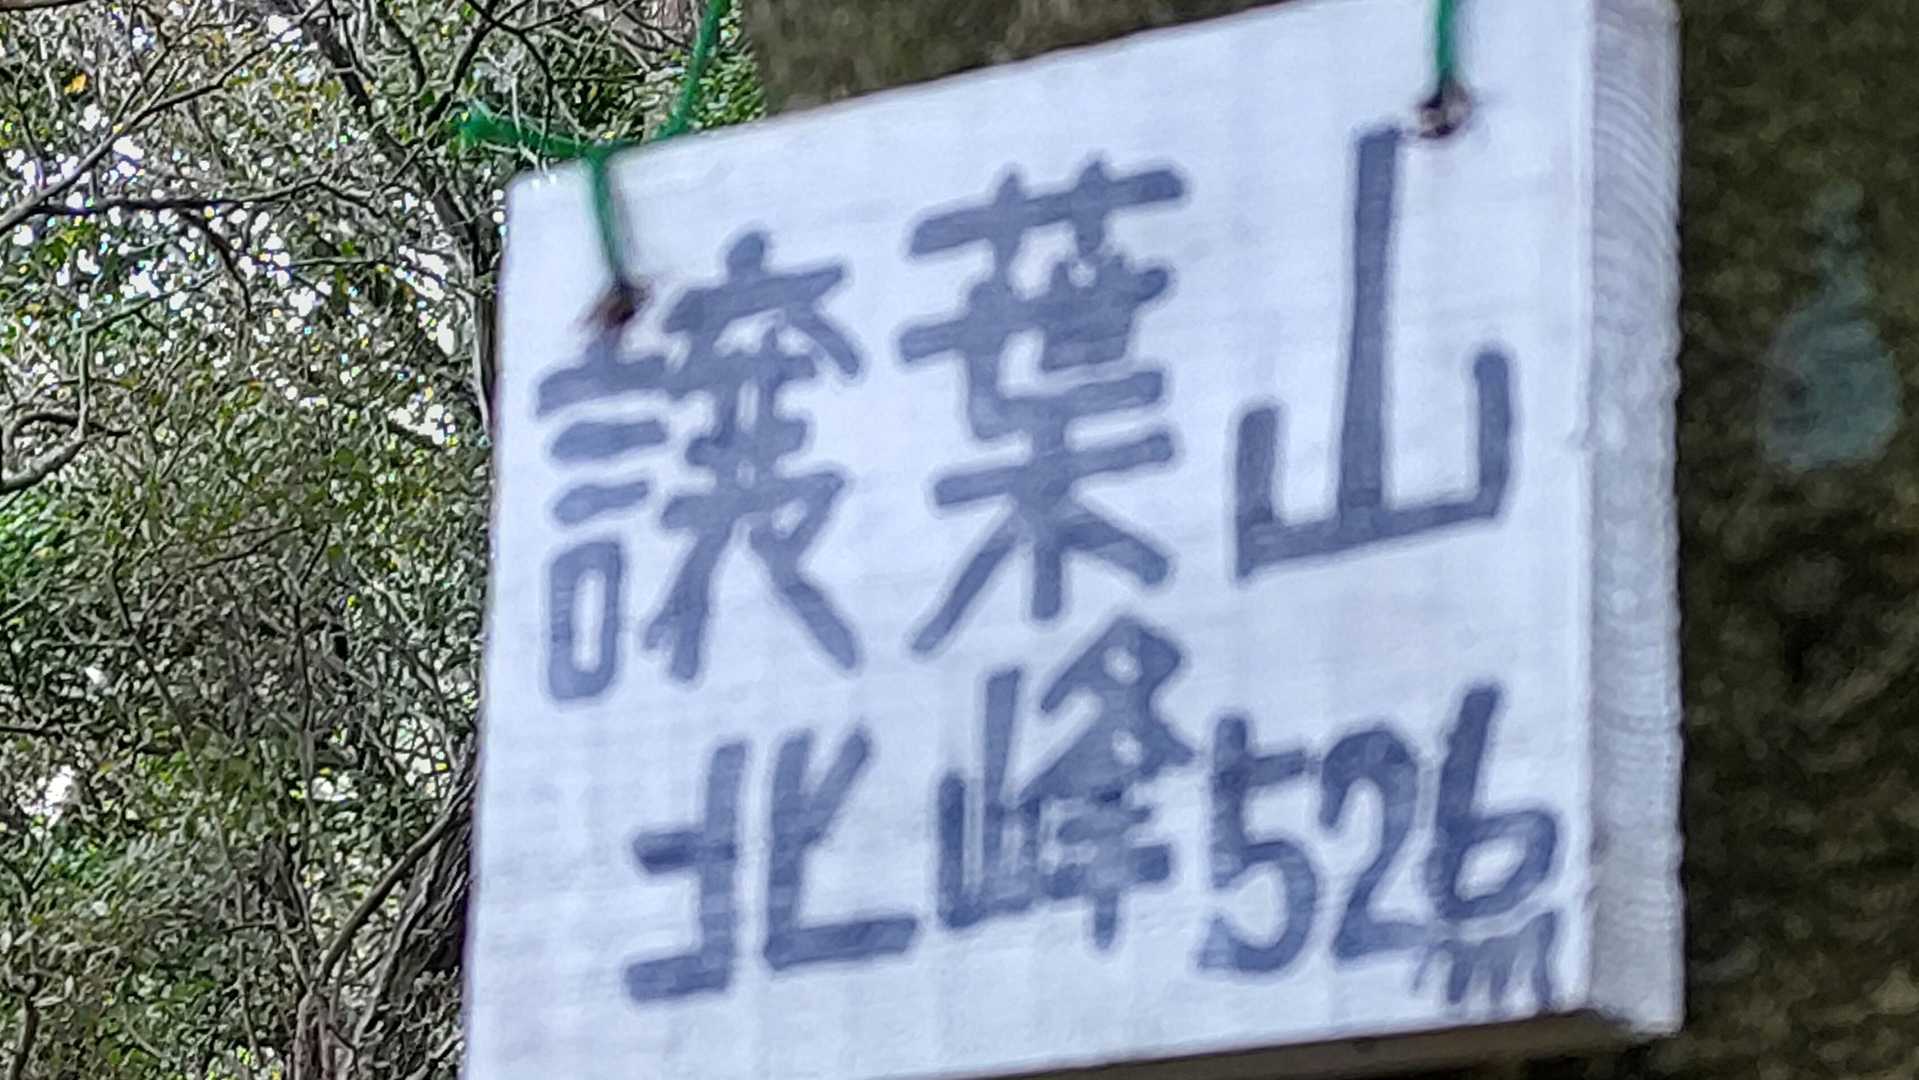 譲葉山
北峰526m